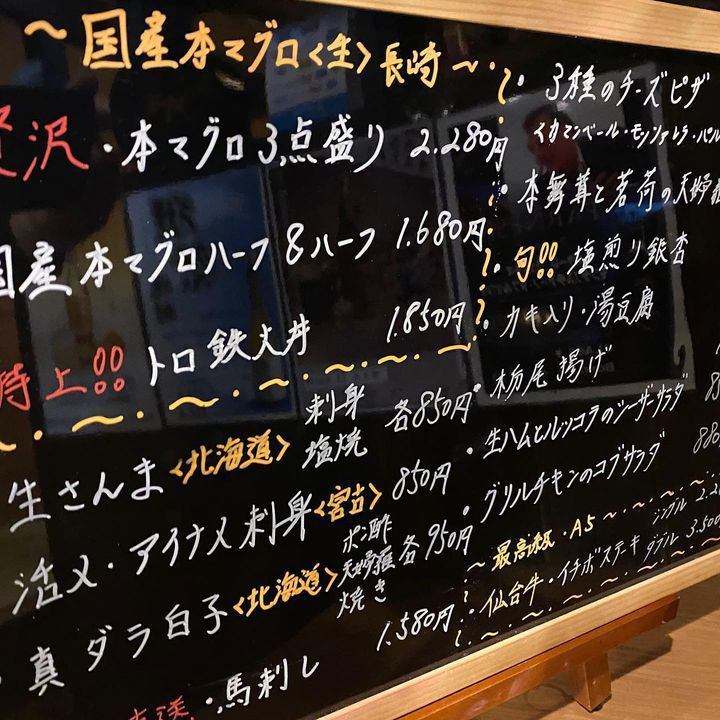 ～国産本マグロ〈生〉長崎～
贅沢・本マグロ3点盛り 2.280円
国産本マグロハーフ8ハーフ 1.680円
特上!! トロ鉄火丼 1.850円
生さんま〈北海道〉刺身 塩焼 各850円
活〆・アイナメ刺身〈宮古〉850円
真ダラ白子〈北海道〉ポン酢 天婦羅 焼き 各950円
・馬刺し 1.580円
・3種のチーズピザ
イカマンベール・モッツァレラ・パル
・本舞茸と茗荷の天婦羅
・旬!! 塩煎り銀杏
・カキ入り・湯豆腐
・栃尾揚げ
・生ハムとルッコラのシーザーサラダ
・グリルチキンのコブサラダ 880
～最高級・A5～
仙台牛・イチボステーキ シングル 2.2
ダブル 3.500